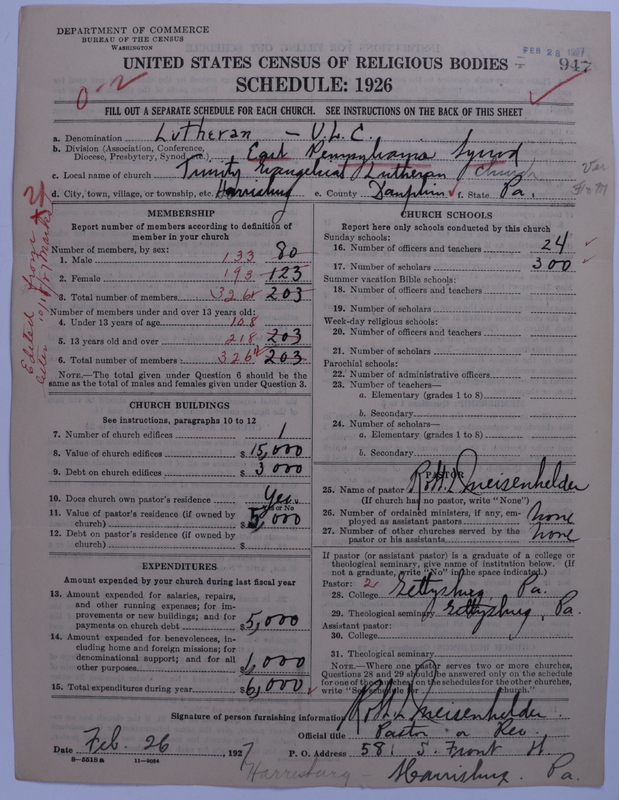 DEPARTMENT OF COMMERCE
BUREAU OF THE CENSUS
WASHINGTON
FEB 28 1927
947
UNITED STATES CENSUS OF RELIGIOUS BODIES
SCHEDULE: 1926
0-2
FILL OUT A SEPARATE SCHEDULE FOR EACH CHURCH. SEE INSTRUCTIONS ON THE BACK OF THIS SHEET
a. Denomination Lutheran - U.L.C.
b. Division (Association, Conference, Diocese, Presbytery, Synod, etc.) East Pennsylvania Synod
c. Local name of church Trinity Evangelical Lutheran Church
d. City, town, village, or township, etc. Harrisburg e. County Dauphin f. State Pa.
Edited from letter
MEMBERSHIP
Report number of members according to definition of member in your church
Number of members, by sex:
1. Male 133 80
2. Female 193 123
3. Total number of members 326 203
Number of members under and over 13 years old:
4. Under 13 years of age 108
5. 13 years old and over 218 203
6. Total number of members 326 203
NOTE.—The total given under Question 6 should be the same as the total of males and females given under Question 3.
CHURCH BUILDINGS
See instructions, paragraphs 10 to 12
7. Number of church edifices 1
8. Value of church edifices $ 15,000
9. Debt on church edifices $ 3000
10. Does church own pastor's residence Yes.
Yes or No
11. Value of pastor's residence (if owned by church) $ 5,000
12. Debt on pastor's residence (if owned by church) $
EXPENDITURES
Amount expended by your church during last fiscal year
13. Amount expended for salaries, repairs, and other running expenses; for improvements or new buildings; and for payments on church debt $ 5,000
14. Amount expended for benevolences, including home and foreign missions; for denominational support; and for all other purposes $ 1,000
15. Total expenditures during year $ 6,000
CHURCH SCHOOLS
Report here only schools conducted by this church
Sunday schools:
16. Number of officers and teachers 24
17. Number of scholars 300
Summer vacation Bible schools:
18. Number of officers and teachers
19. Number of scholars
Week-day religious schools:
20. Number of officers and teachers
21. Number of scholars
Parochial schools:
22. Number of administrative officers
23. Number of teachers—
a. Elementary (grades 1 to 8)
b. Secondary
24. Number of scholars—
a. Elementary (grades 1 to 8)
b. Secondary
PASTOR
25. Name of pastor Robt. L. Meisenhelder
(If church has no pastor, write "None")
26. Number of ordained ministers, if any, employed as assistant pastors None
27. Number of other churches served by the pastor or his assistants None
If pastor (or assistant pastor) is a graduate of a college or theological seminary, give name of institution below. (If not a graduate, write "No" in the space indicated.)
Pastor: 2
28. College Gettysburg, Pa.
29. Theological seminary Gettysburg, Pa.
Assistant pastor:
30. College
31. Theological seminary
NOTE.—Where one pastor serves two or more churches, Questions 28 and 29 should be answered only on the schedule for one of the churches; on the schedules for the other churches, write "See schedule for church."
Signature of person furnishing information Robt. L. Meisenhelder
Official title Pastor or Rev.
Date Feb. 26, 1927 P. O. Address 581 S. Front St.
8-5518a 11-9024 Harrisburg - Harrisburg. Pa.